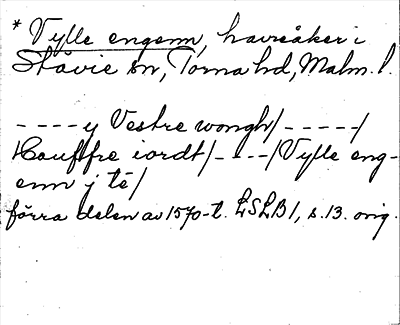 * Vylle engenn, havreåker i
Ståvie sn, Torna hd, Malm. l.
- - - - y Vestre wongh/ - - - - -/
Hauffre iordt/ - - - -/ Vylle eng-
enn j të/
förra delen av 1570-t. LSLB1, s. 13. orig.